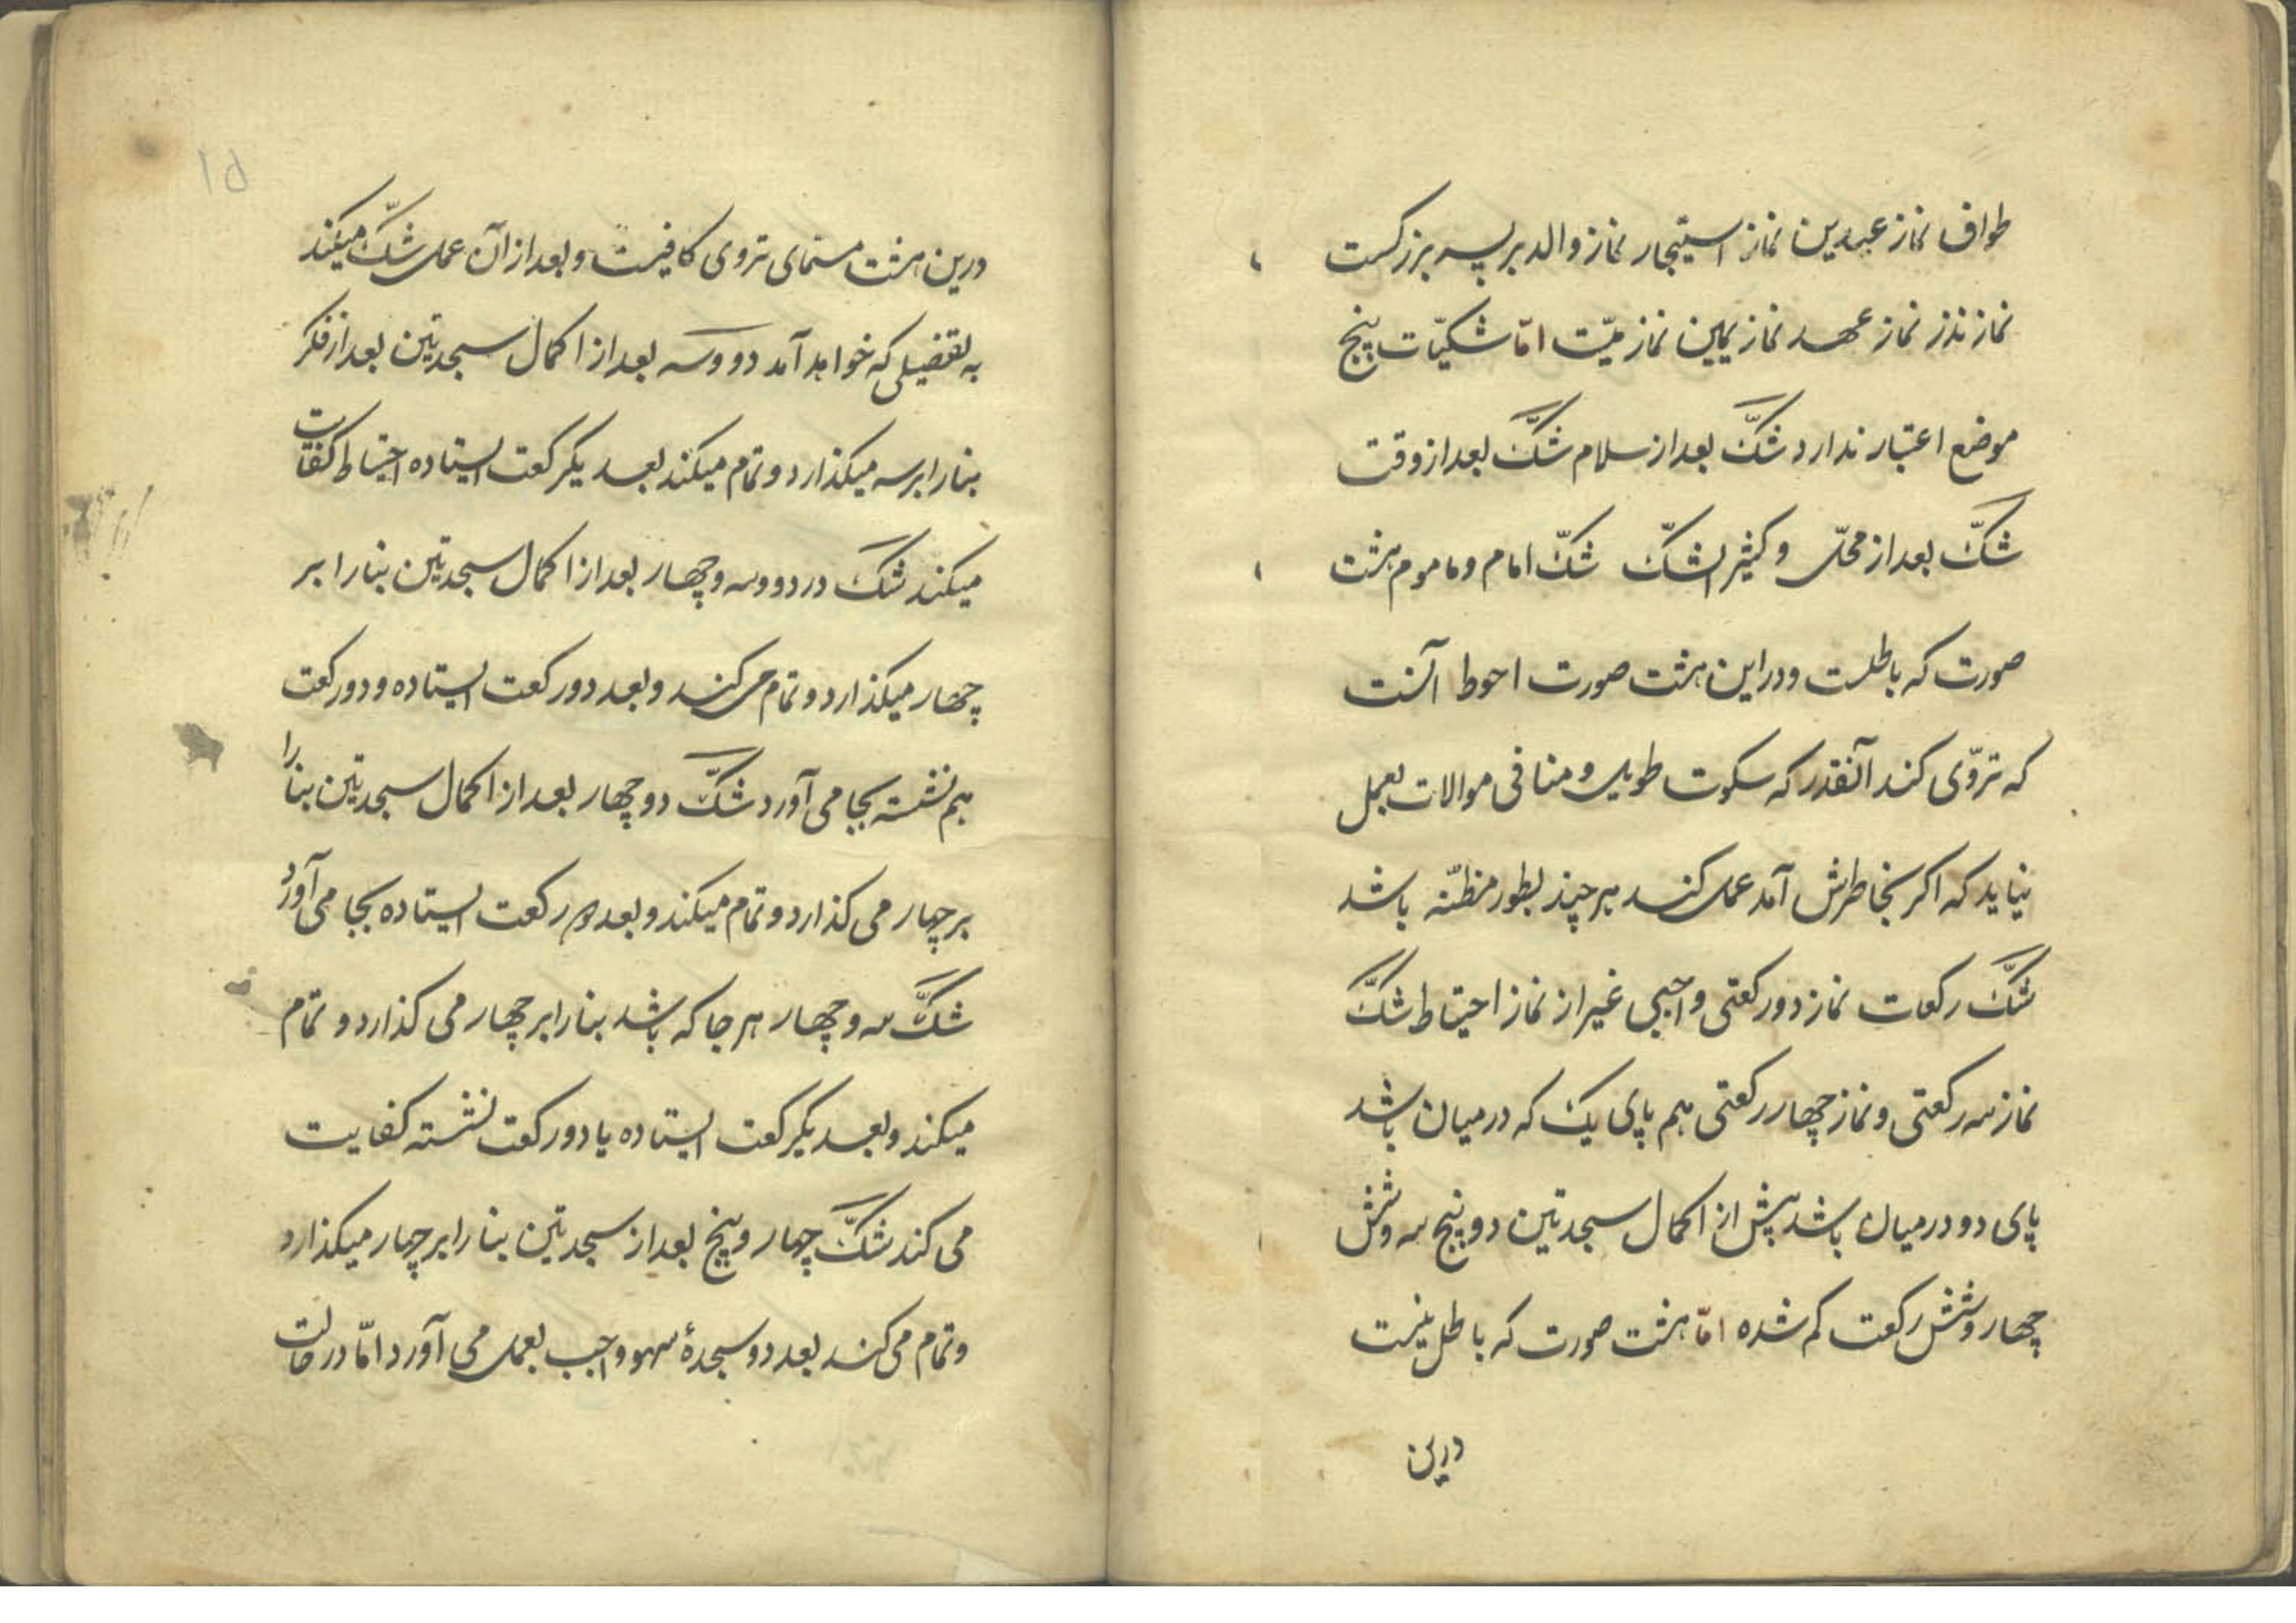 طواف نماز عیدین نماز استیجار نماز والد بر پسر بزرگست
نماز نذر نماز عهد نماز یمین نماز میّت امّا شکیّات پنج
موضع اعتبار ندارد شکّ بعد از سلام شکّ بعد از وقت
شکّ بعد از محلّ و کثیر الشکّ شکّ امام و ماموم هشت
صورت که باطلست و در این هشت صورت احوط آنست
که تروّی کند آنقدر که سکوت طویل و منافی موالات بعمل
نیاید که اکر بخاطرش آمد عمل کند هر چند بطور مظنّه باشد
شکّ رکعات نماز دو رکعتی واجبی غیر از نماز احتیاط شکّ
نماز سه رکعتی و نماز چهار رکعتی هم پای یک که در میان باشد
پای دو در میان باشد پیش از اکمال سجدتین دو پنج سه و شش
چهار و شش رکعت کم شده امّا هشت صورت که باطل نیست
درین
۱۵
درین هشت مسمای تروی کافیست و بعد از آن عمل شکّ میکند
به تفصیلی که خواهد آمد دو و سه بعد از اکمال سجدتین بعد از فکر
بنا را بر سه میکذارد و تمام میکند بعد یکرکعت ایستاده احتیاط کفایت
میکند شک در دو و سه و چهار بعد از اکمال سجدتین بنا را بر
چهار میکذارد و تمام می کند و بعد دو رکعت ایستاده و دو رکعت
هم نشسته بجا می آورد شکّ دو چهار بعد از اکمال سجدتین بنا را
بر چهار می کذارد و تمام میکند و بعد دو رکعت ایستاده بجا می آورد
شکّ سه و چهار هر جا که باشد بنا را بر چهار می کذارد و تمام
میکند و بعد یکرکعت ایستاده یا دو رکعت نشسته کفایت
می کند شکّ چهار و پنج بعد از سجدتین بنا را بر چهار میکذارد
و تمام می کند بعد دو سجدهٔ سهو واجب بعمل می آورد امّا در حالت